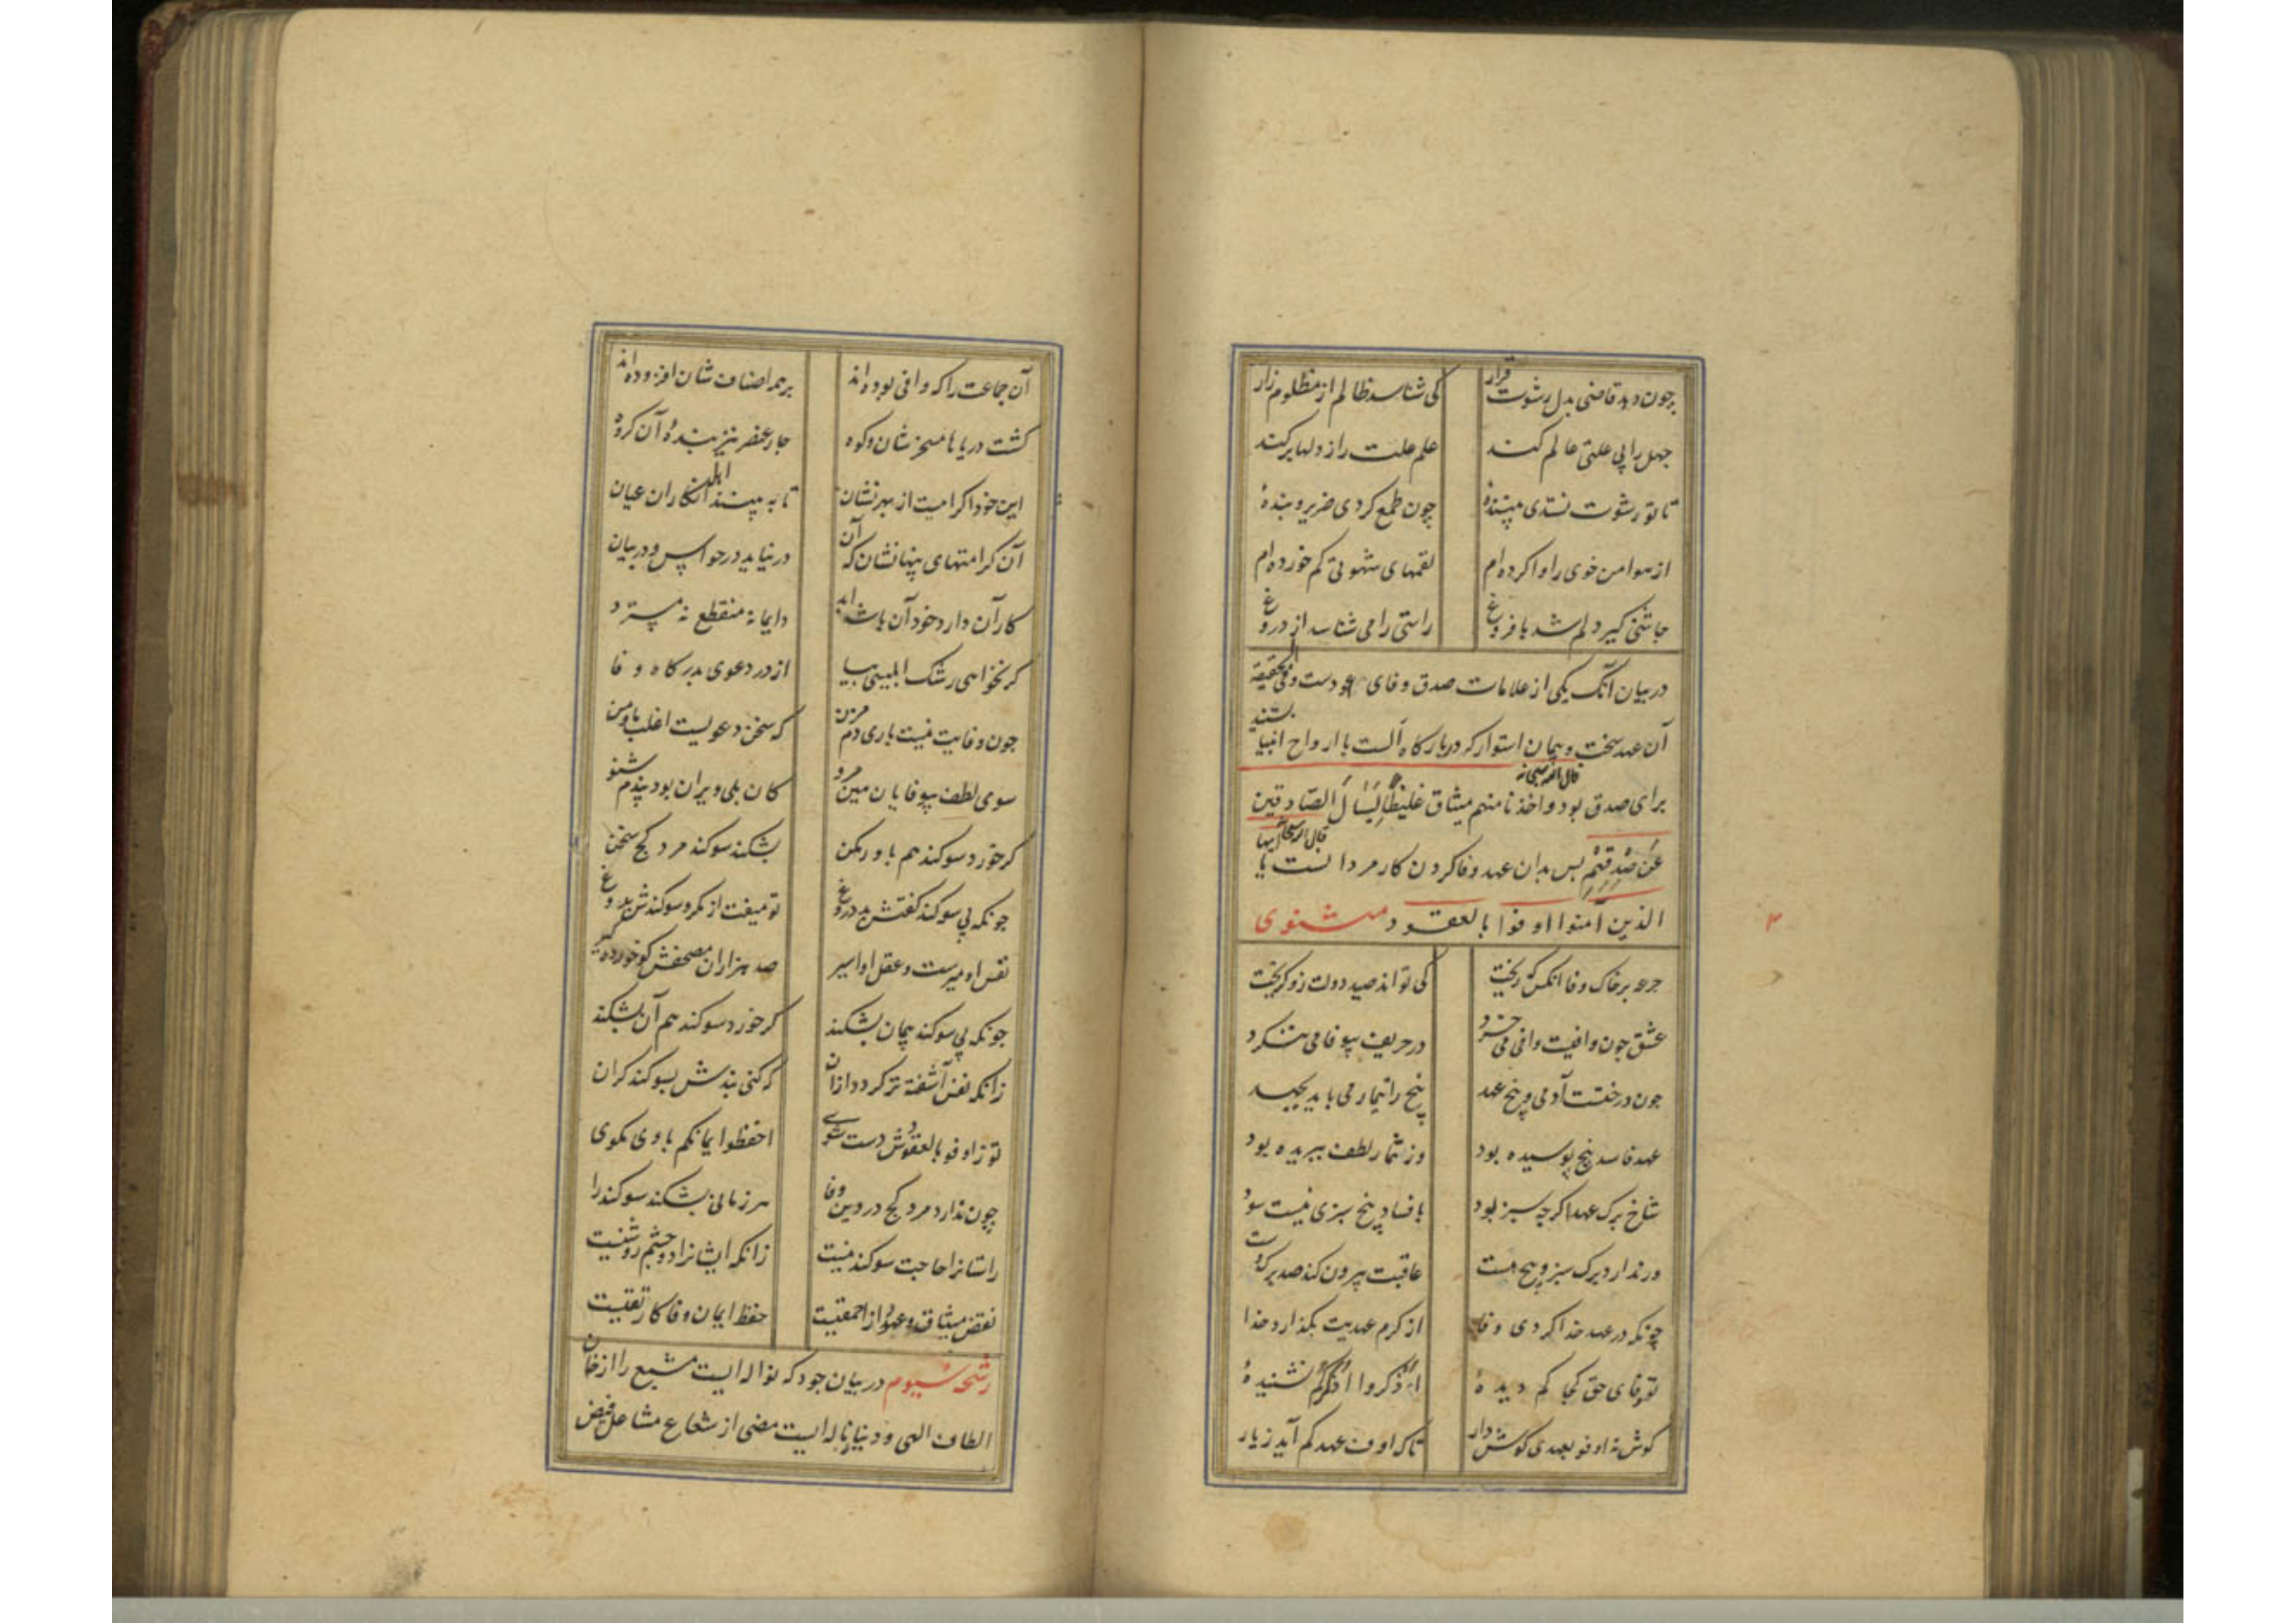 چون دهد قاضی بدل رشوت قرار کی شناسد ظالم از مظلوم زار
جهل را بی علتی عالم کند علم علت را ز دلها برکند
تا تو رشوت نستدی بینندهٔ چون طمع کردی ضریر و بندهٔ
از هوا من خوی را وا کرده ام لقمهای شهوتی کم خورده ام
چاشنی گیر دلم شد با فروغ راستی را می شناسد از دروغ
در بیان آنک یکی از علامات صدق وفای عهودست وفی الحقیقة
آن عهد سخت و پیمان استوار که در بارکاه الست با ارواح انبیا بستند
برای صدق بود قال الله سبحانه واخذنا منهم میثاق غلیظاً لِیَسْأَلَ الصّادقین
عَن صِدْقِهِم بس بدان عهد وفا کردن کار مردانست قال الله سبحانه یا ایها
الذین آمنوا اوفوا بالعقود مثنوی
جرعه بر خاک وفا آنکس که ریخت کی تواند صید دولت زو کریخت
عشق چون وافیست وافی می خرد در حریف بیوفا می ننکرد
چون درختست آدمی و بیخ عهد بیخ را تیمار می باید بجهد
عهد فاسد بیخ پوسیده بود وز ثمار لطف ببریده بود
شاخ و برک عهد اکرچه سبز بود با فساد بیخ سبزی نیست سود
ور ندارد برک سبز و بیخ هست عاقبت بیرون کند صد برک دست
چونکه در عهد خدا کردی وفا از کرم عهدیت بکذارد خدا
تو وفای حق کجا کم دیدهٔ اُذکروا اَذکرکُم نشنیدهٔ
کوش نه اوفو بعهدی کوش دار تا که اوف عهدکم آید ز یار
آن جماعت را که وافی بوده اند بر همه اصناف شان افزوده اند
کشت دریاها مسخرشان و کوه چار عنصر نیز بندهٔ آن کروه
این خود اکرامیست از بهر نشان تا به بینند اهل انکاران عیان
آن کرامتهای پنهانشان که آن در نیاید در حواس و در بیان
کار آن دارد خود آن باشد ابد دایما نه منقطع نه مسترد
کر نخواهی رشک ابلیسی بیا از در دعوی بدرکاه وفا
چون وفایت نیست باری دم مزن که سخن دعویست اغلب با و من
سوی لطف بیوفایان هین مرو کان پلی ویران بود پندم شنو
کر خورد سوکند هم باور مکن بشکند سوکند مرد کج سخن
چونکه بی سوکند کفتش بد دروغ تو میفت از مکر و سوکندش بدوغ
نفس او میرست و عقل او اسیر صد هزاران مصحفش کو خورده کیر
چونکه بی سوکند پیمان بشکند کر خورد سوکند هم آن بشکند
زانکه نفس آشفته تر کردد از آن که کنی بندش بسوکند کران
تو ز اوفو بالعقودش دست شوی احفظوا ایمانکم با وی مکوی
چون ندارد مرد کج در دین وفا هر زمانی بشکند سوکند را
راستانرا حاجت سوکند نیست زانکه ایشانرا دو چشم روشنیست
نقض میثاق و عهود از احمقیست حفظ ایمان و وفا کار تقیست
رشحه سیوم در بیان جود که نواله ایست مشبع را از خان
الطاف الهی و دنیا زباله ایست مضی از شعاع مشاعل فیض